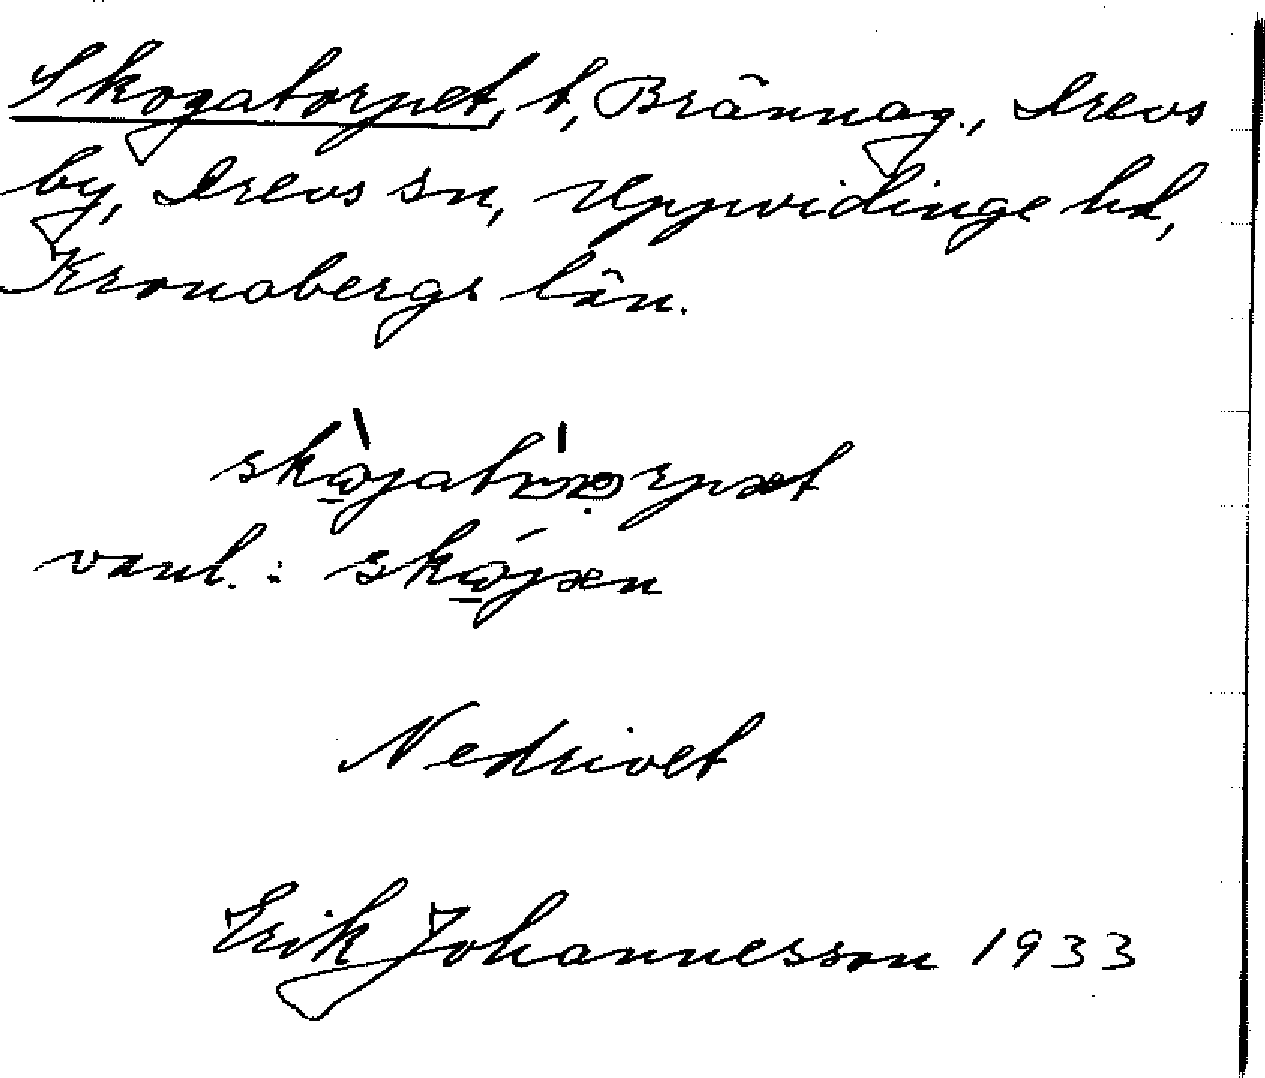 Skogatorpet, t, Brännag., Drevs
by, Drevs sn, Uppvidinge hd,
Kronobergs län.
vanl.: skǫ́jæn
Nedrivet
Erik Johannesson 1933